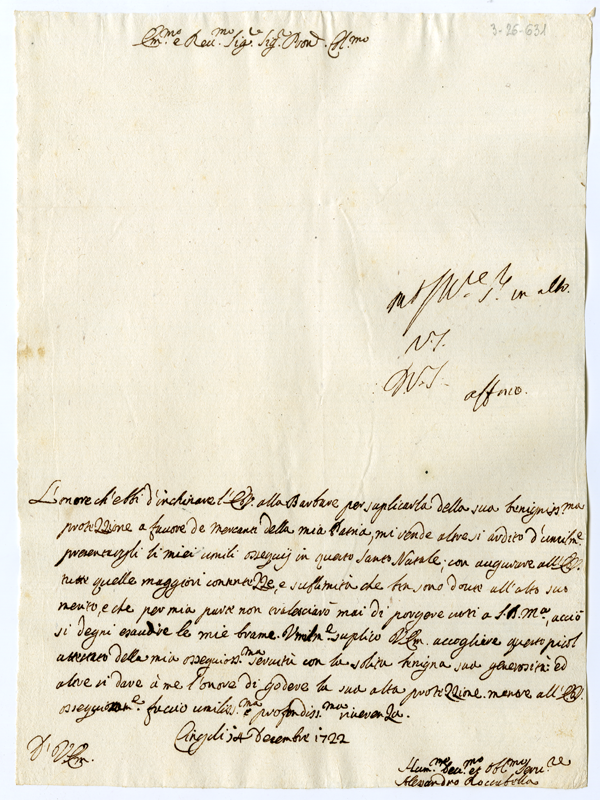 3-25-631
Em.mo e Reu.mo Sig.re Sig.re Pron. Col.mo
in alto.
V.S.
D.V.S. affono.
L'onore ch'ebbi d'inchinare l'Em. alla Barbare per suplicarla della sua benigniss.ma
protezzione a favore de mercanti della mia Patria, mi rende altresi ardito d'umilm.e
presentargli li miei umili ossequij in questo Santo Natale; con augurare all'Em.
tutte quelle maggiori contentezze, e suflimità che ben sono doute all'alto suo
merito, e che per mia parte non tralascierò mai di porgere uoti a S.D.M.a, acciò
si degni esaudire le mie brame. Umilm.e suplico V.Em. accogliere questo picol
attestato della mia ossequioss.ma seruitù con la solita benigna sua generosità: ed
altresi dare à me l'onore di godere la sua alta protezzione. mentre all'Em.
ossequiosam.e faccio umiliss.ma e profondiss.ma riuerenza.
Cingoli 14 Decembre 1722
D' V.Em.
Hum.mo Deu.mo et Obl.mo Seru.re
Alessandro Roccabella